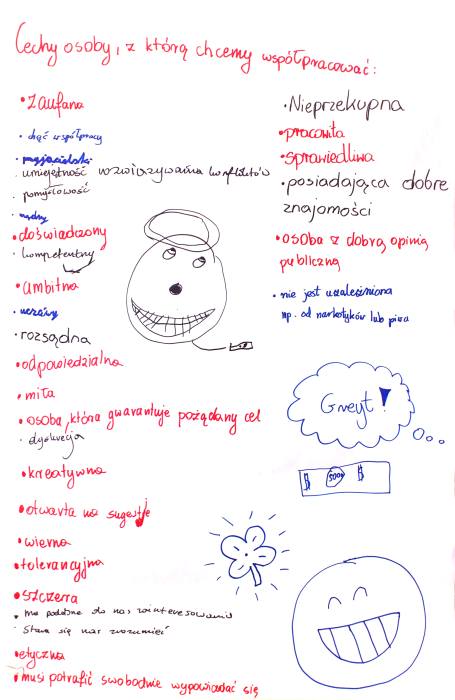 Cechy osoby, z którą chcemy współpracować:
• zaufana
• chęć współpracy
• przyjacielski
· umiejętność rozwiązywania konfliktów
· pomysłowość
· mądry
• doświadczony
· kompetentny
• ambitna
• uczciwy
• rozsądna
• odpowiedzialna
• miła
• osoba, która gwarantuje pożądany cel
· dyskrecja
• kreatywna
• otwarta na sugestje
• wierna
• tolerancyjna
• szczerra
• ma podobne do nas zainteresowania
• Stara się nas zrozumieć
• etyczna
• musi potrafić swobodnie wypowiadać się
• Nieprzekupna
• pracowita
• sprawiedliwa
• posiadająca dobre
znajomości
• osoba z dobrą opinią
publiczną
• nie jest uzależniona
np. od narkotyków lub piwa
Greyt!
$ 500 $